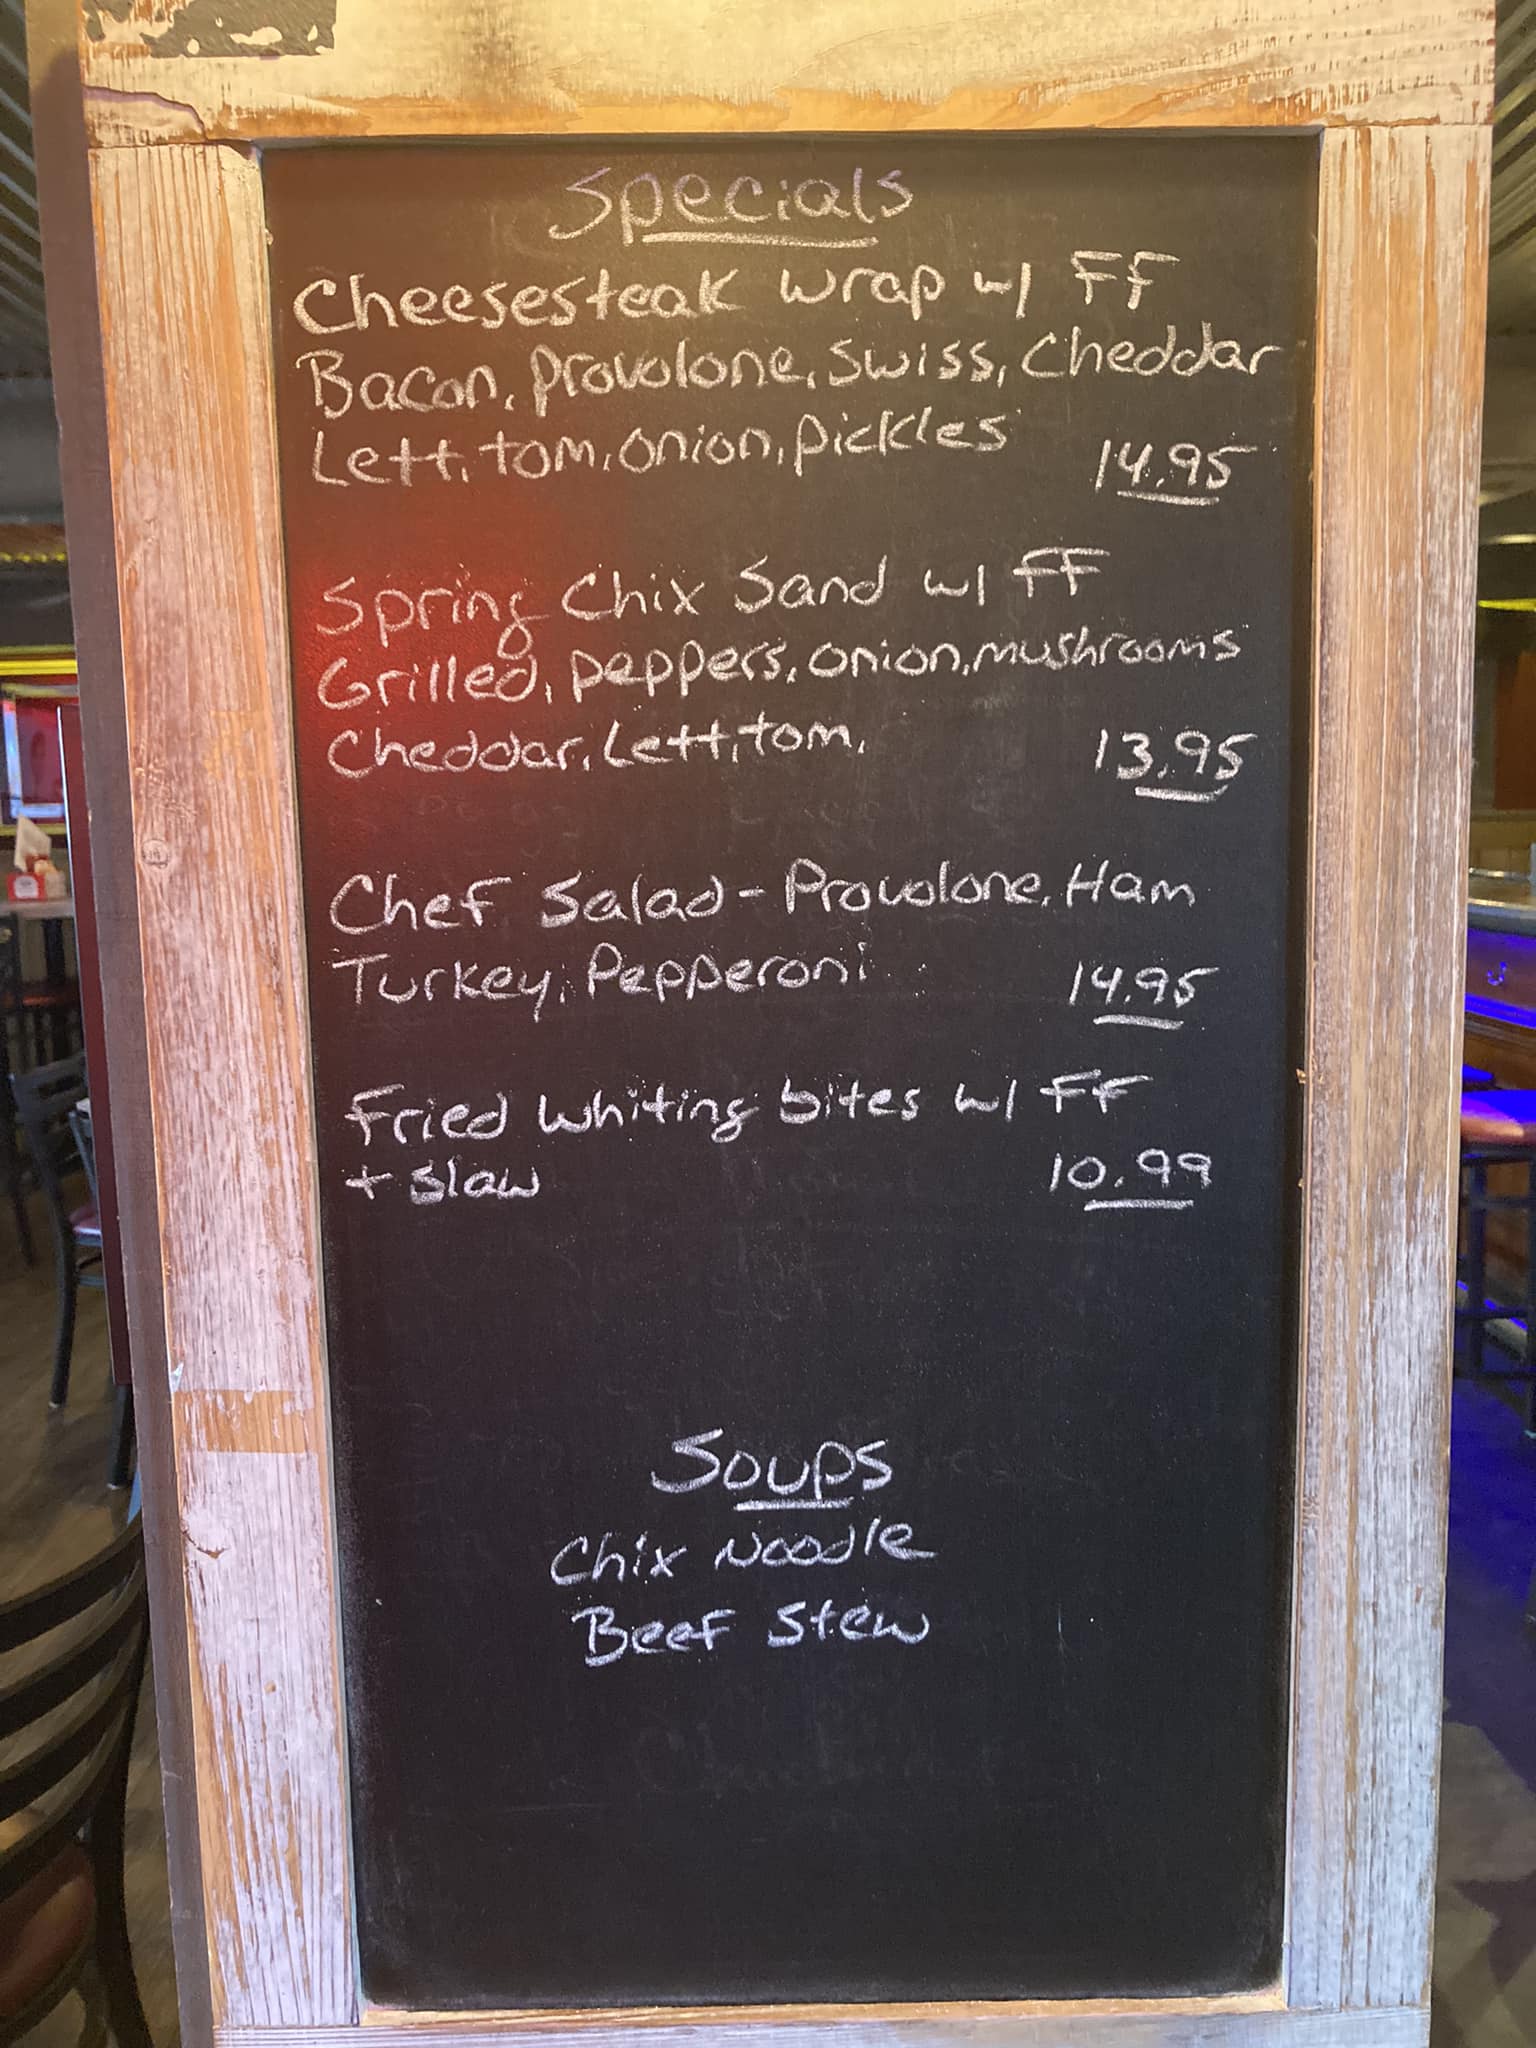 Specials
Cheesesteak wrap w/ FF
Bacon, Provolone, Swiss, Cheddar
Lett, tom, onion, pickles 14.95
Spring Chix Sand w/ FF
Grilled, peppers, onion, mushrooms
Cheddar, Lett, tom, 13.95
Chef Salad - Provolone, Ham
Turkey, Pepperoni 14.95
Fried Whiting bites w/ FF
+ Slaw 10.99
Soups
Chix Noodle
Beef Stew